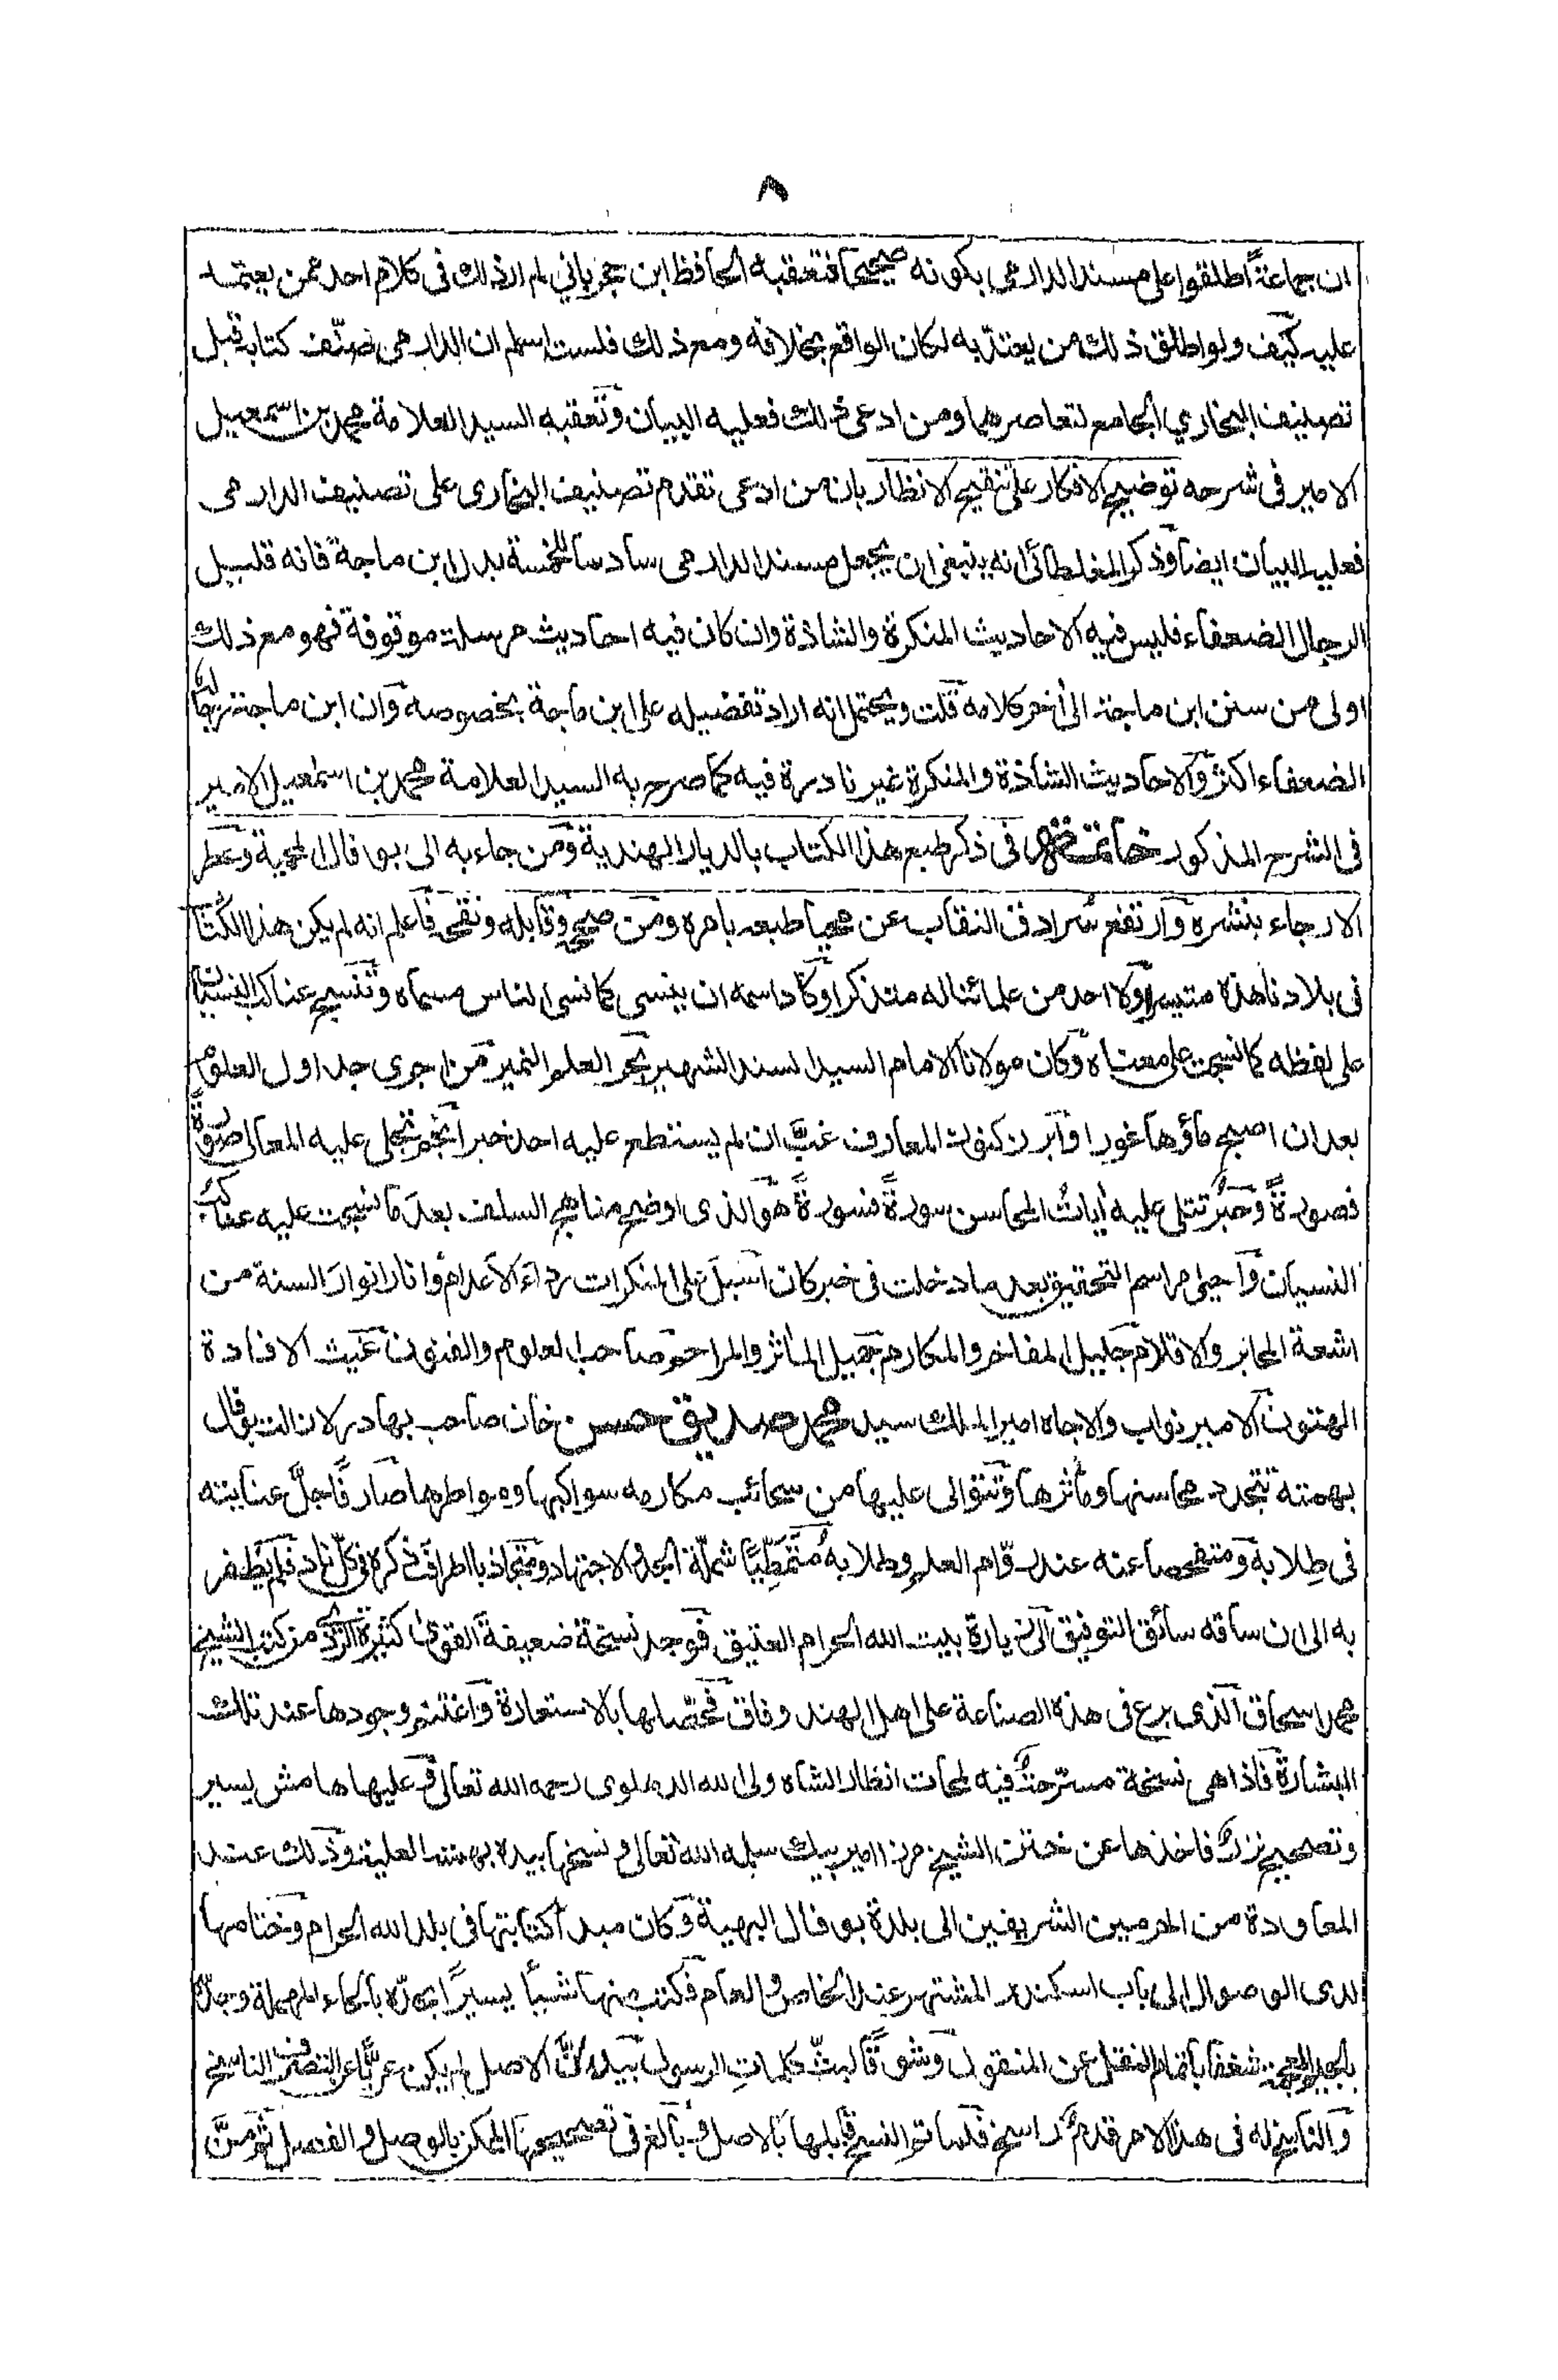 ٨
ان جماعةً اطلقوا على مسند الدارمي بكونه صحيحا فتعقبه الحافظ ابن حجر باني لم ار ذلك في كلام احد ممن يعتمد
عليه كيف ولو اطلق ذلك من يعتد به لكان الواقع بخلافه ومع ذلك فلست اسلم ان الدارمي صنّف كتابه قبل
تصنيف البخاري الجامع لتعاصرهما ومن ادعى ذلك فعليه البيان وتعقبه السيد العلامة محمد بن اسمعيل
الامير في شرحه توضيح الافكار على تنقيح الانظار بان من ادعى تقدم تصنيف البخارى على تصنيف الدارمى
فعليه البيان ايضا وذكر المغلطائى انه ينبغى ان يجعل مسند الدارمى سادسا للخمسة بدل ابن ماجة فانه قليل
الرجال الضعفاء فليس فيه الاحاديث المنكرة والشاذة وان كان فيه احاديث مرسلة موقوفة فهو مع ذلك
اولى من سنن ابن ماجة الى أخر كلامه قلت ويحتمل انه اراد تفضيله على ابن ماجة بخصوصه وان ابن ماجة رجاله
الضعفاء اكثر والاحاديث الشاذة والمنكرة غير نادرة فيه كما صرح به السيد العلامة محمد بن اسمعيل الامير
فى الشرح المذكور خاتمة فى ذكر طبع هذا الكتاب بالديار الهندية ومن جاء به الى بوفال المحمية وعطر
الارجاء بنشره وارتفع سرادق النقاب عن محيا طبعه بامره ومن صححه وقابله ونقحه فاعلم انه لم يكن هذا الكتاب
فى بلادنا هذه متيسرا ولا احد من علمائنا له متذكرا وكاد اسمه ان ينسى كما نسى الناس مسماه وتنسج عناكب النسيان
على لفظه كما نسجت على معناه وكان مولانا الامام السيد السند الشهير بحر العلم النمير من اجرى جداول العلوم
بعد ان اصبح ماؤها غورا وابرز كنوز المعارف غبّ ان لم يستطع عليه احد خبرا تجلى عليه المعالى صورةً
فصورةً وحبرٌ تتلى عليه أياتُ المحاسن سورةً فسورةً هو الذى اوضح مناهج السلف بعد ما نسجت عليه عناكب
النسيان واحيى مراسم التحقيق بعد ما دخلت فى خبر كان اسبل على المنكرات رداء الاعدام وانار انوار السنة من
اشعة المحابر والاقلام جليل المفاخر والمكارم جميل المأثر والمراحم صاحب العلوم والفنون غيث الافادة
الهتون الامير نواب والاجاه امير الملك سيد محمد صديق حسن خان صاحب بهادر لازالت بوفال
بهمته تتجدد محاسنها ومأثرها وتتوالى عليها من سحائب مكارمه سواكبها ومواطرها صارفًا جلّ عنايته
فى طِلابه ومتفحصا عنه عند قوّام العلم وطلابه مُتمطّيًا شملّة الجد والاجتهاد ومتجاذبا اطراف ذكره فى كلّ ناد فلم يظفر
به الى ان ساقه سائق التوفيق الى زيارة بيت الله الحرام العتيق فوجد نسخة ضعيفة القوى كثيرة من كتب الشيخ
محمد اسحاق الذى برع فى هذه الصناعة على اهل الهند وفاق فحصّلها بالاستعارة واغتنم وجودها عند تلك
البشارة فاذا هى نسخة مسترحتٌ فيه لمحات انظار الشاه ولى الله الدهلوى رحمه الله تعالى عليها هامش يسير
وتصحيح نزرٌ فاخذها عن ختن الشيخ مرزا امير بيك سلمه الله تعالى ونسخها بيده بهمته العلية وذلك عند
المعاودة من الحرمين الشريفين الى بلدة بوفال البهية وكان مبدأ كتابتها فى بلد الله الحرام وختامها
لدى الوصول الى باب اسكندر المشتهر عند الخاص والعام فكتب منها شيئًا يسيرًا بالحاء المهملة
بالجيم المعجمة شغفا باتمام النقل عن المنقول وشوقًا لبثّ كلمات الرسول بيد انّ الاصل لم يكن عريًّا عن الناسخ
والناسخ له فى هذا الامر قدمٌ راسخ فلما تم النسخ قابلها بالاصل وبالغ فى تصحيحها الممكن بالوصل والفصل ثم منّ